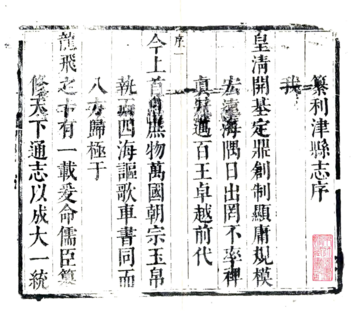 纂利津縣志序
我
皇清開基定鼎創制顯庸規模
宏海隅日出罔不率裨
真邁百王卓越前代
序一
今上首庶物萬國朝宗玉帛
執而四海謳歌車書同而
八方歸極于
龍飛之十有一載爰命儒臣纂
修天下通志以成大一統